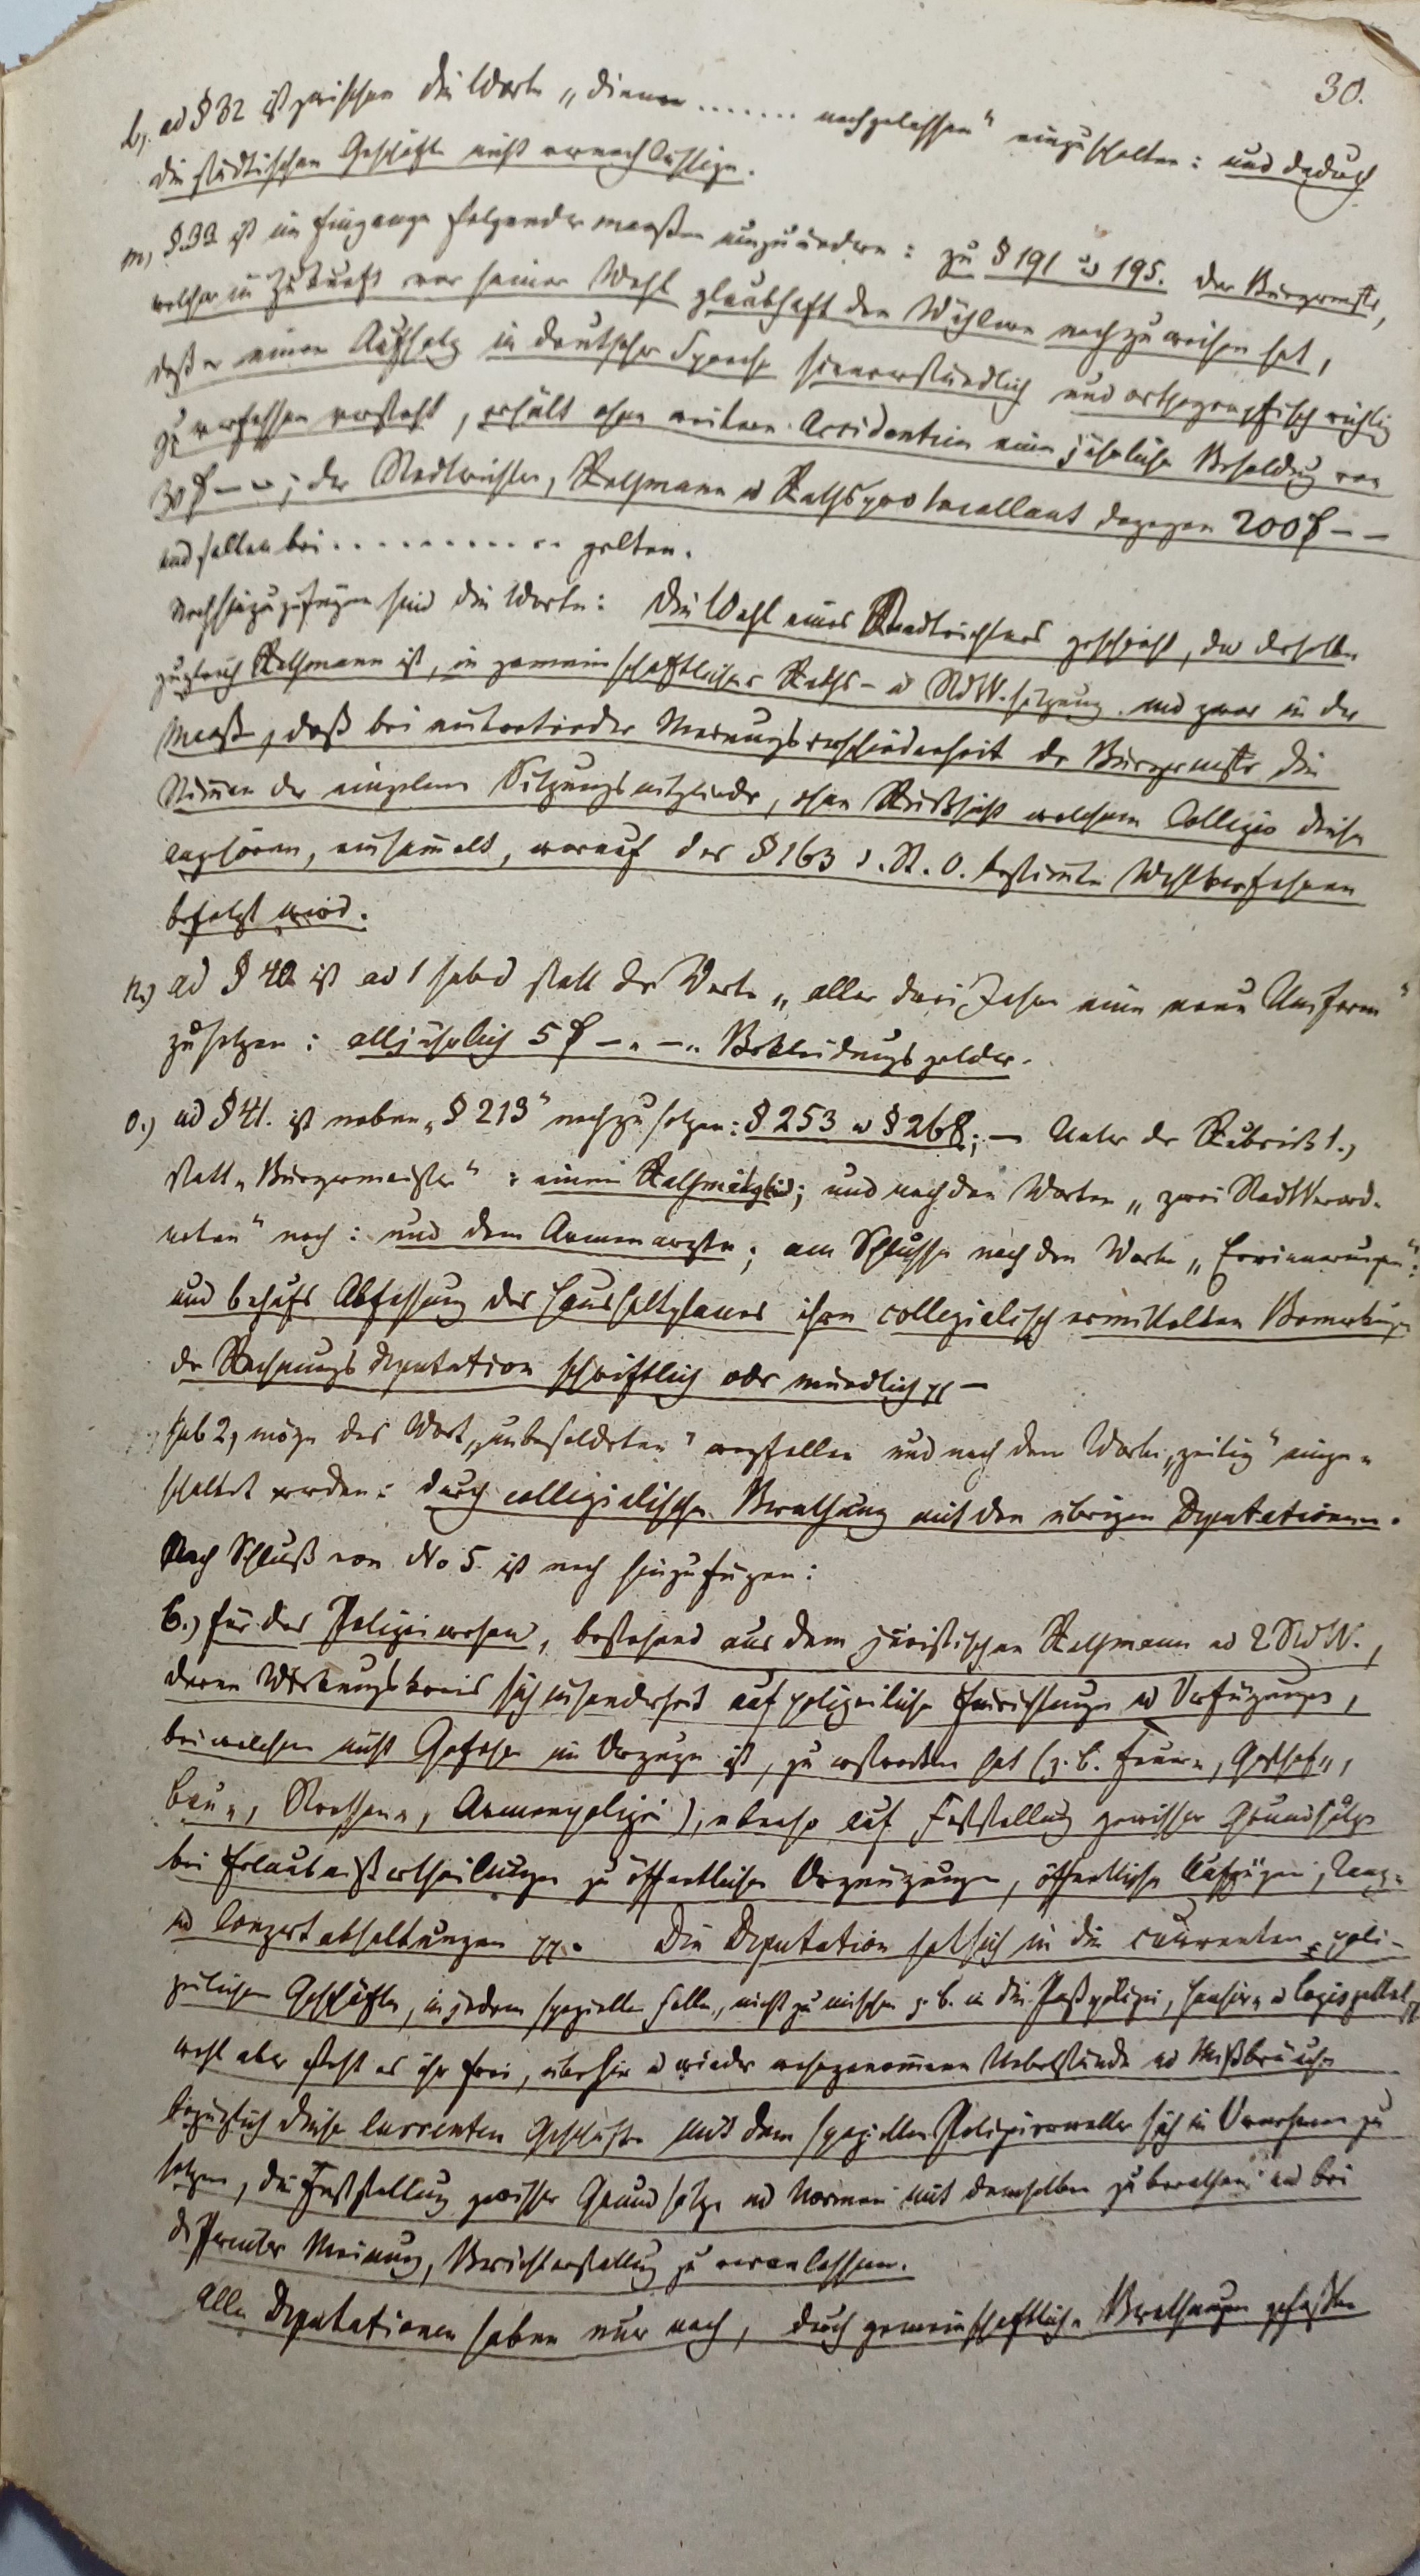 30.
l, ad § 32 ist zwischen die Worte „dienen ....... nachgelassen“ einzuschalten: und dadurch
die städtischen Geschäfte nicht vernachlässige.
m, § 33 ist im Eingange folgendermaaßen umzuändern: zu § 191 u 195. Der Bürgermstr,
welcher in Zukunft vor seiner Wahl glaubhaft den Wählern nachzuweisen hat,
daß er einen Aufsatz in deutscher Sprache sinnverständlich und orthographisch richtig
zu verfassen versteht, erhält ohne weitere Accidentien eine jährliche Besoldung von
der Stadtrichter, Rathsmann u Rathsprotocollant dagegen 200
und sollen bei ........... gelten.
Noch hinzuzufügen sind die Worte: Die Wahl eines Stadtrichters geschieht, da derselbe
zugleich Rathsmann ist, in gemeinschaftlicher Raths- u StVV.sitzung und zwar in der
Maaß, daß bei eintretender Meinungsverschiedenheit der Bürgermstr die
Stimmen der einzelnen Sitzungsmitglieder, ohne Rücksicht welchem Collegio diese
angehören, einsammelt, worauf das § 163 d. St. O. bestimmte Wahlverfahren
befolgt wird.
n.) ad § 40 ist ad 1 statt der Worte „aller drei Jahre eine neue Uniform“
zu setzen: alljährlich 5 Bekleidungsgelder.
o.) ad § 41. ist neben „§ 213“ nachzusetzen: § 253 u § 268; — Unter der Rubrik 1.,
statt „Bürgermeister“: einem Rathsmitglied; und nach den Worten „zwei Stadtverord-
neten“ noch: und dem Armenarzte; am Schlusse nach den Worte „Erinnerungen“:
und behufs Abfassung des Haushaltplanes ihre collegialisch ermittelten Bemerkungen
der Rechnungsdeputation schriftlich oder mündlich pp —
sub 2, möge das Wort „unbesoldeten“ wegfallen und nach dem Worte „zeitig“ einge-
schaltet werden: durch collegialische Berathung mit den übrigen Deputationen.
Nach Schluß von No 5. ist noch hinzuzufügen:
6.) für das Polizeiwesen, bestehend aus dem juristischen Rathsmann u 2 StVV.,
deren Wirkungskreis sich insonderheit auf polizeiliche Einrichtungen u Verfügungen,
bei welchen nicht Gefahr im Verzuge ist, zu erstrecken hat (z. B. Feuer-,
Bau-, Straßen-, Armenpolizei), ebenso auf Feststellung gewisser Grundsätze
bei Erlaubnißertheilungen zu öffentlichen Vergnügungen, öffentliche Aufzügen, Tanz-
u Conzertabhaltungen pp. Die Deputation hat sich in die currenten poli-
zeilichen Geschäfte, in jedem speziellen Falle, nicht zu mischen z. B. in die Paßpolizei, Hausir- u Logiszettel pp
wohl aber steht es ihr frei, über hin u wieder wahrgenommene Uebelstände u Mißbräuche
bezüglich dieser currenten Geschäfte mit dem speziellen Polizeiverwalter sich in Vernehmen zu
setzen, die Feststellung gewisser Grundsätze u Normen mit demselben zu berathen u bei
differenter Meinung, Berichterstattung zu veranlassen.
Alle Deputationen haben nur nach, durch gemeinschaftliche Berathungen gefaßten